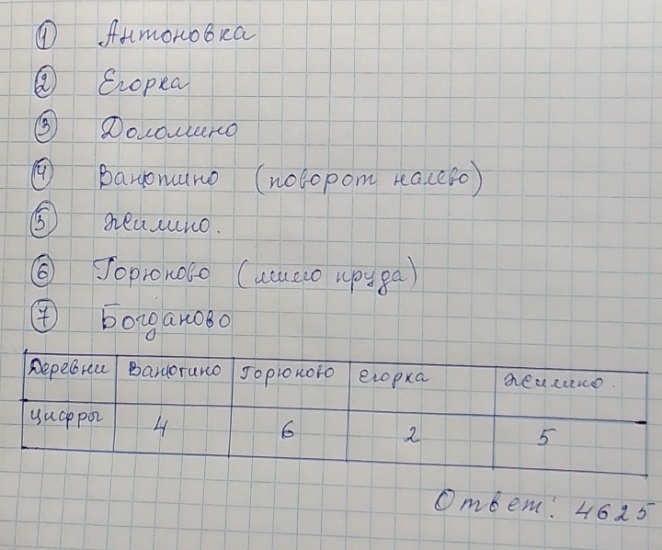 1 Антоновка
2 Егорка
3 Доломино
4 Ванютино (поворот налево)
5 Жилино.
6 Горюново (мимо пруда)
7 Богданово
Деревни Ванютино Горюново Егорка Жилино.
цифры 4 6 2 5
Ответ: 4625